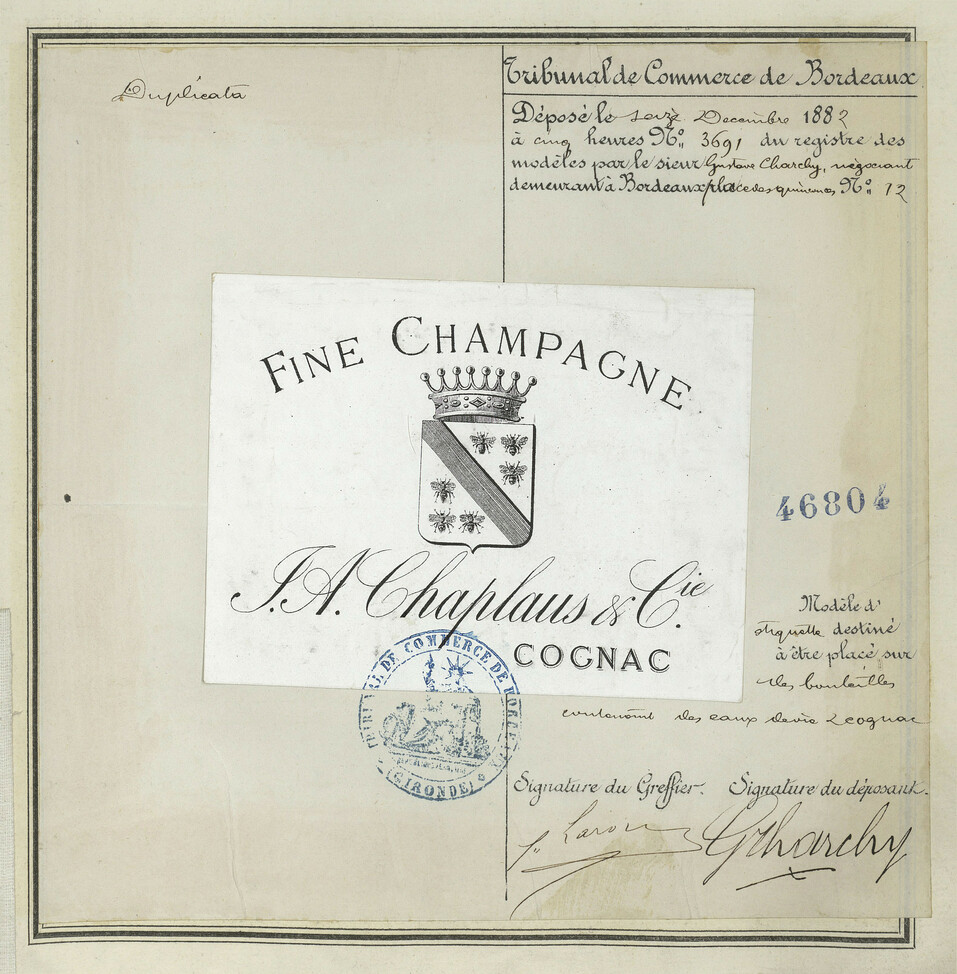 Duplicata
Tribunal de Commerce de Bordeaux
Déposé le seize Decembre 1882
à cinq heures No. 3691 du registre des
modèles par le sieur Gustave Charchy, négociant
demeurant à Bordeaux place des quinconces No. 12
FINE CHAMPAGNE
46804
J. A. Chaplaus & Cie.
COGNAC
Modèle d'
etiquette destiné
à être placé sur
des bouteilles
contenant des eaux devie
TRIBUNAL DE COMMERCE DE BORDEAUX
(GIRONDE)
Signature du Greffier. Signature du déposant.
GCharchy